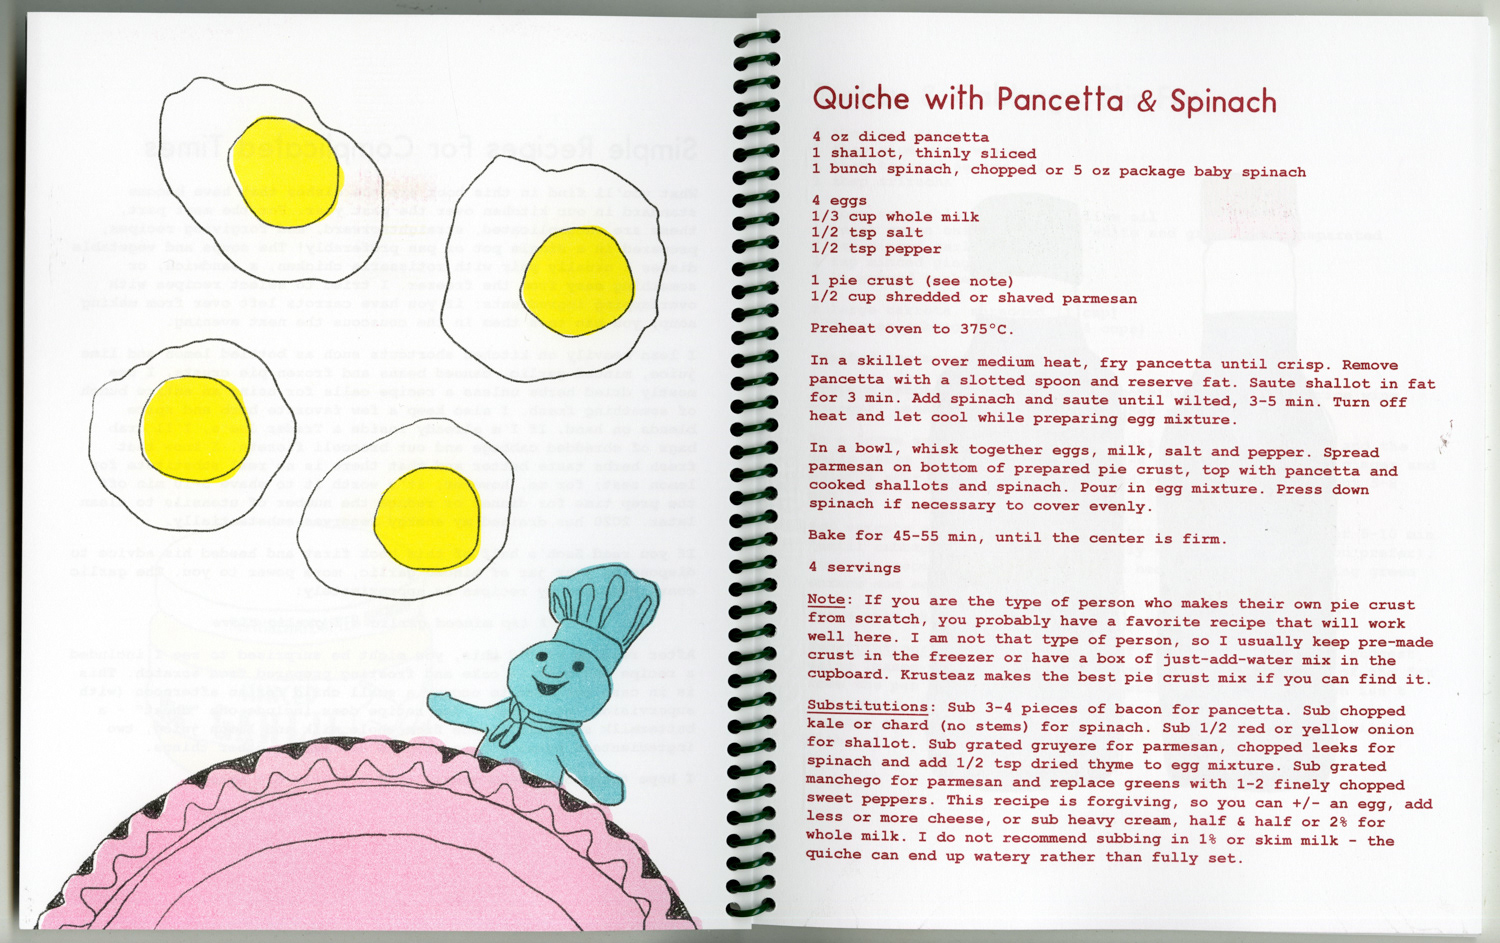 Quiche with Pancetta & Spinach
4 oz diced pancetta
1 shallot, thinly sliced
1 bunch spinach, chopped or 5 oz package baby spinach
4 eggs
1/3 cup whole milk
1/2 tsp salt
1/2 tsp pepper
1 pie crust (see note)
1/2 cup shredded or shaved parmesan
Preheat oven to 375°C.
In a skillet over medium heat, fry pancetta until crisp. Remove
pancetta with a slotted spoon and reserve fat. Saute shallot in fat
for 3 min. Add spinach and saute until wilted, 3-5 min. Turn off
heat and let cool while preparing egg mixture.
In a bowl, whisk together eggs, milk, salt and pepper. Spread
parmesan on bottom of prepared pie crust, top with pancetta and
cooked shallots and spinach. Pour in egg mixture. Press down
spinach if necessary to cover evenly.
Bake for 45-55 min, until the center is firm.
4 servings
Note: If you are the type of person who makes their own pie crust
from scratch, you probably have a favorite recipe that will work
well here. I am not that type of person, so I usually keep pre-made
crust in the freezer or have a box of just-add-water mix in the
cupboard. Krusteaz makes the best pie crust mix if you can find it.
Substitutions: Sub 3-4 pieces of bacon for pancetta. Sub chopped
kale or chard (no stems) for spinach. Sub 1/2 red or yellow onion
for shallot. Sub grated gruyere for parmesan, chopped leeks for
spinach and add 1/2 tsp dried thyme to egg mixture. Sub grated
manchego for parmesan and replace greens with 1-2 finely chopped
sweet peppers. This recipe is forgiving, so you can +/- an egg, add
less or more cheese, or sub heavy cream, half & half or 2% for
whole milk. I do not recommend subbing in 1% or skim milk - the
quiche can end up watery rather than fully set.